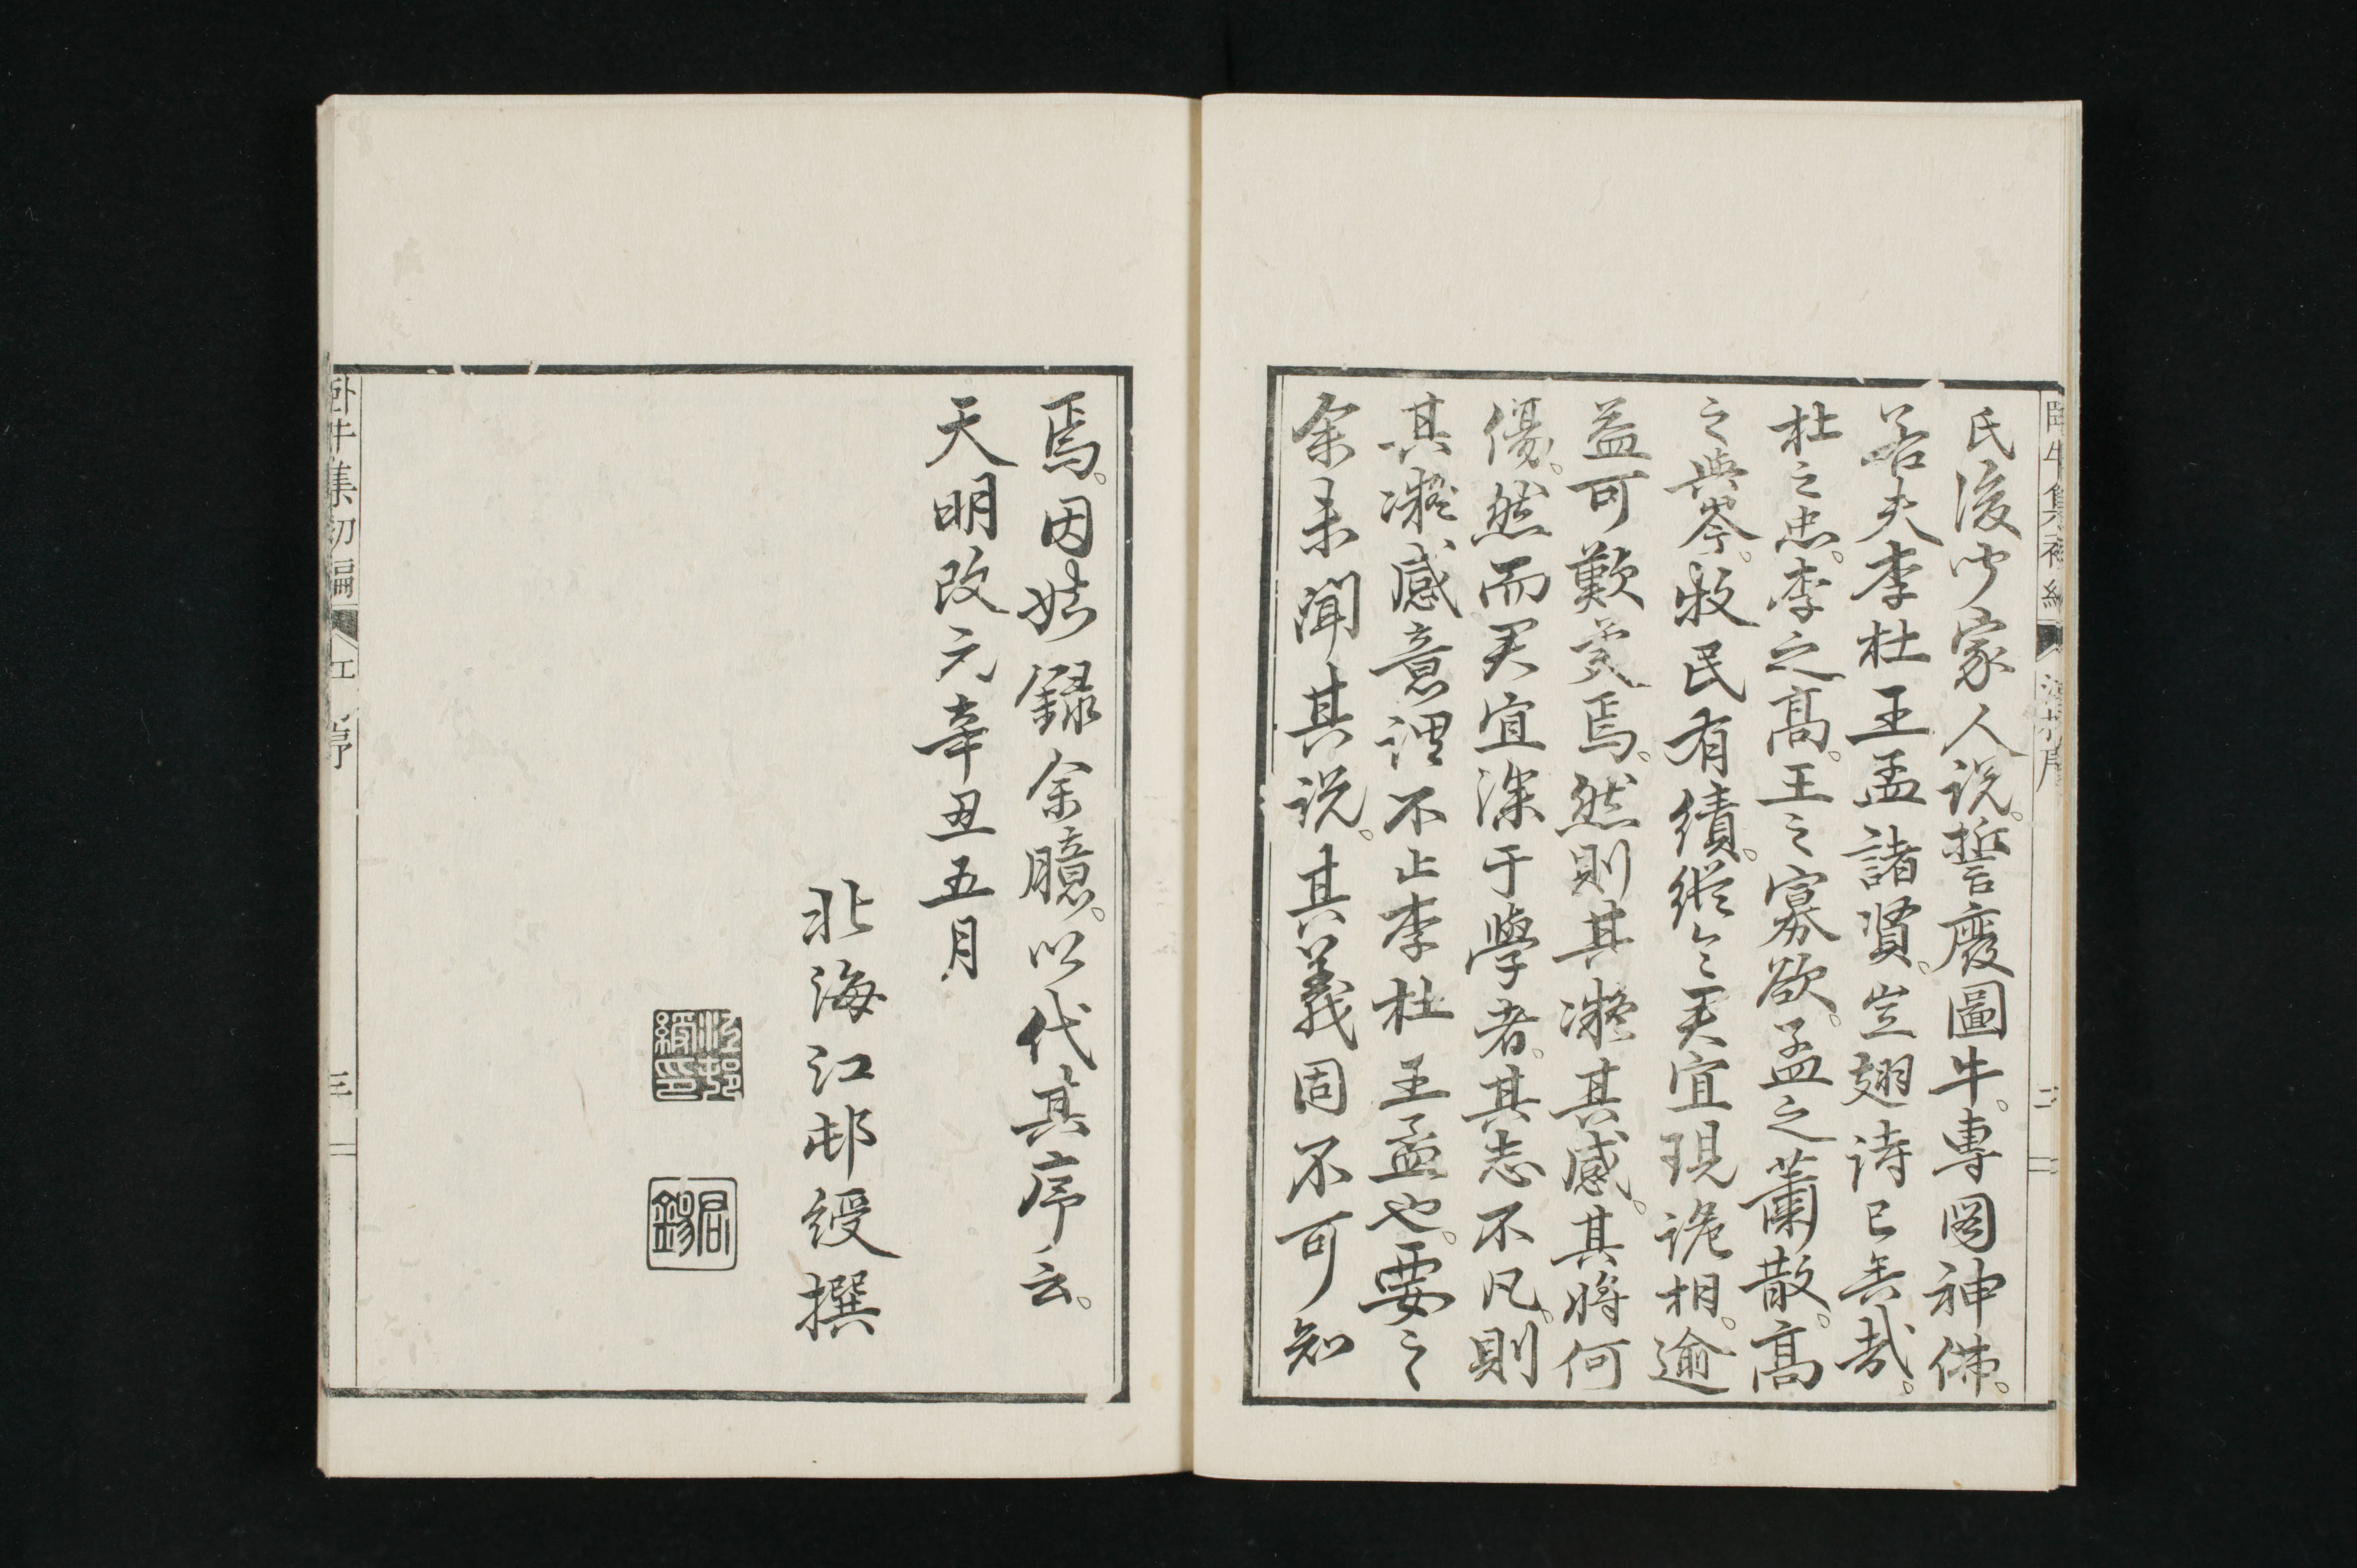 氏後聞家人説。誓廢圖牛。專図神佛。
若夫李杜王孟諸賢。豈翅詩已矣哉。
杜之忠。李之高。王之寡欲。孟之蕭散。高
之與岑。牧民有績。縱令天宜現詭相。逾
益可歎羙焉。然則其凝其感。其將何
優。然而天宜深于學者。其志不凡。則
其凝感意謂不止李杜王孟也。要之
余未聞其説。其義固不可知
焉。因姑録余臆。以代其序云。
天明改元辛丑五月
北海江邨綬撰
江邨綬印
君錫
臥牛集初編
江序
三